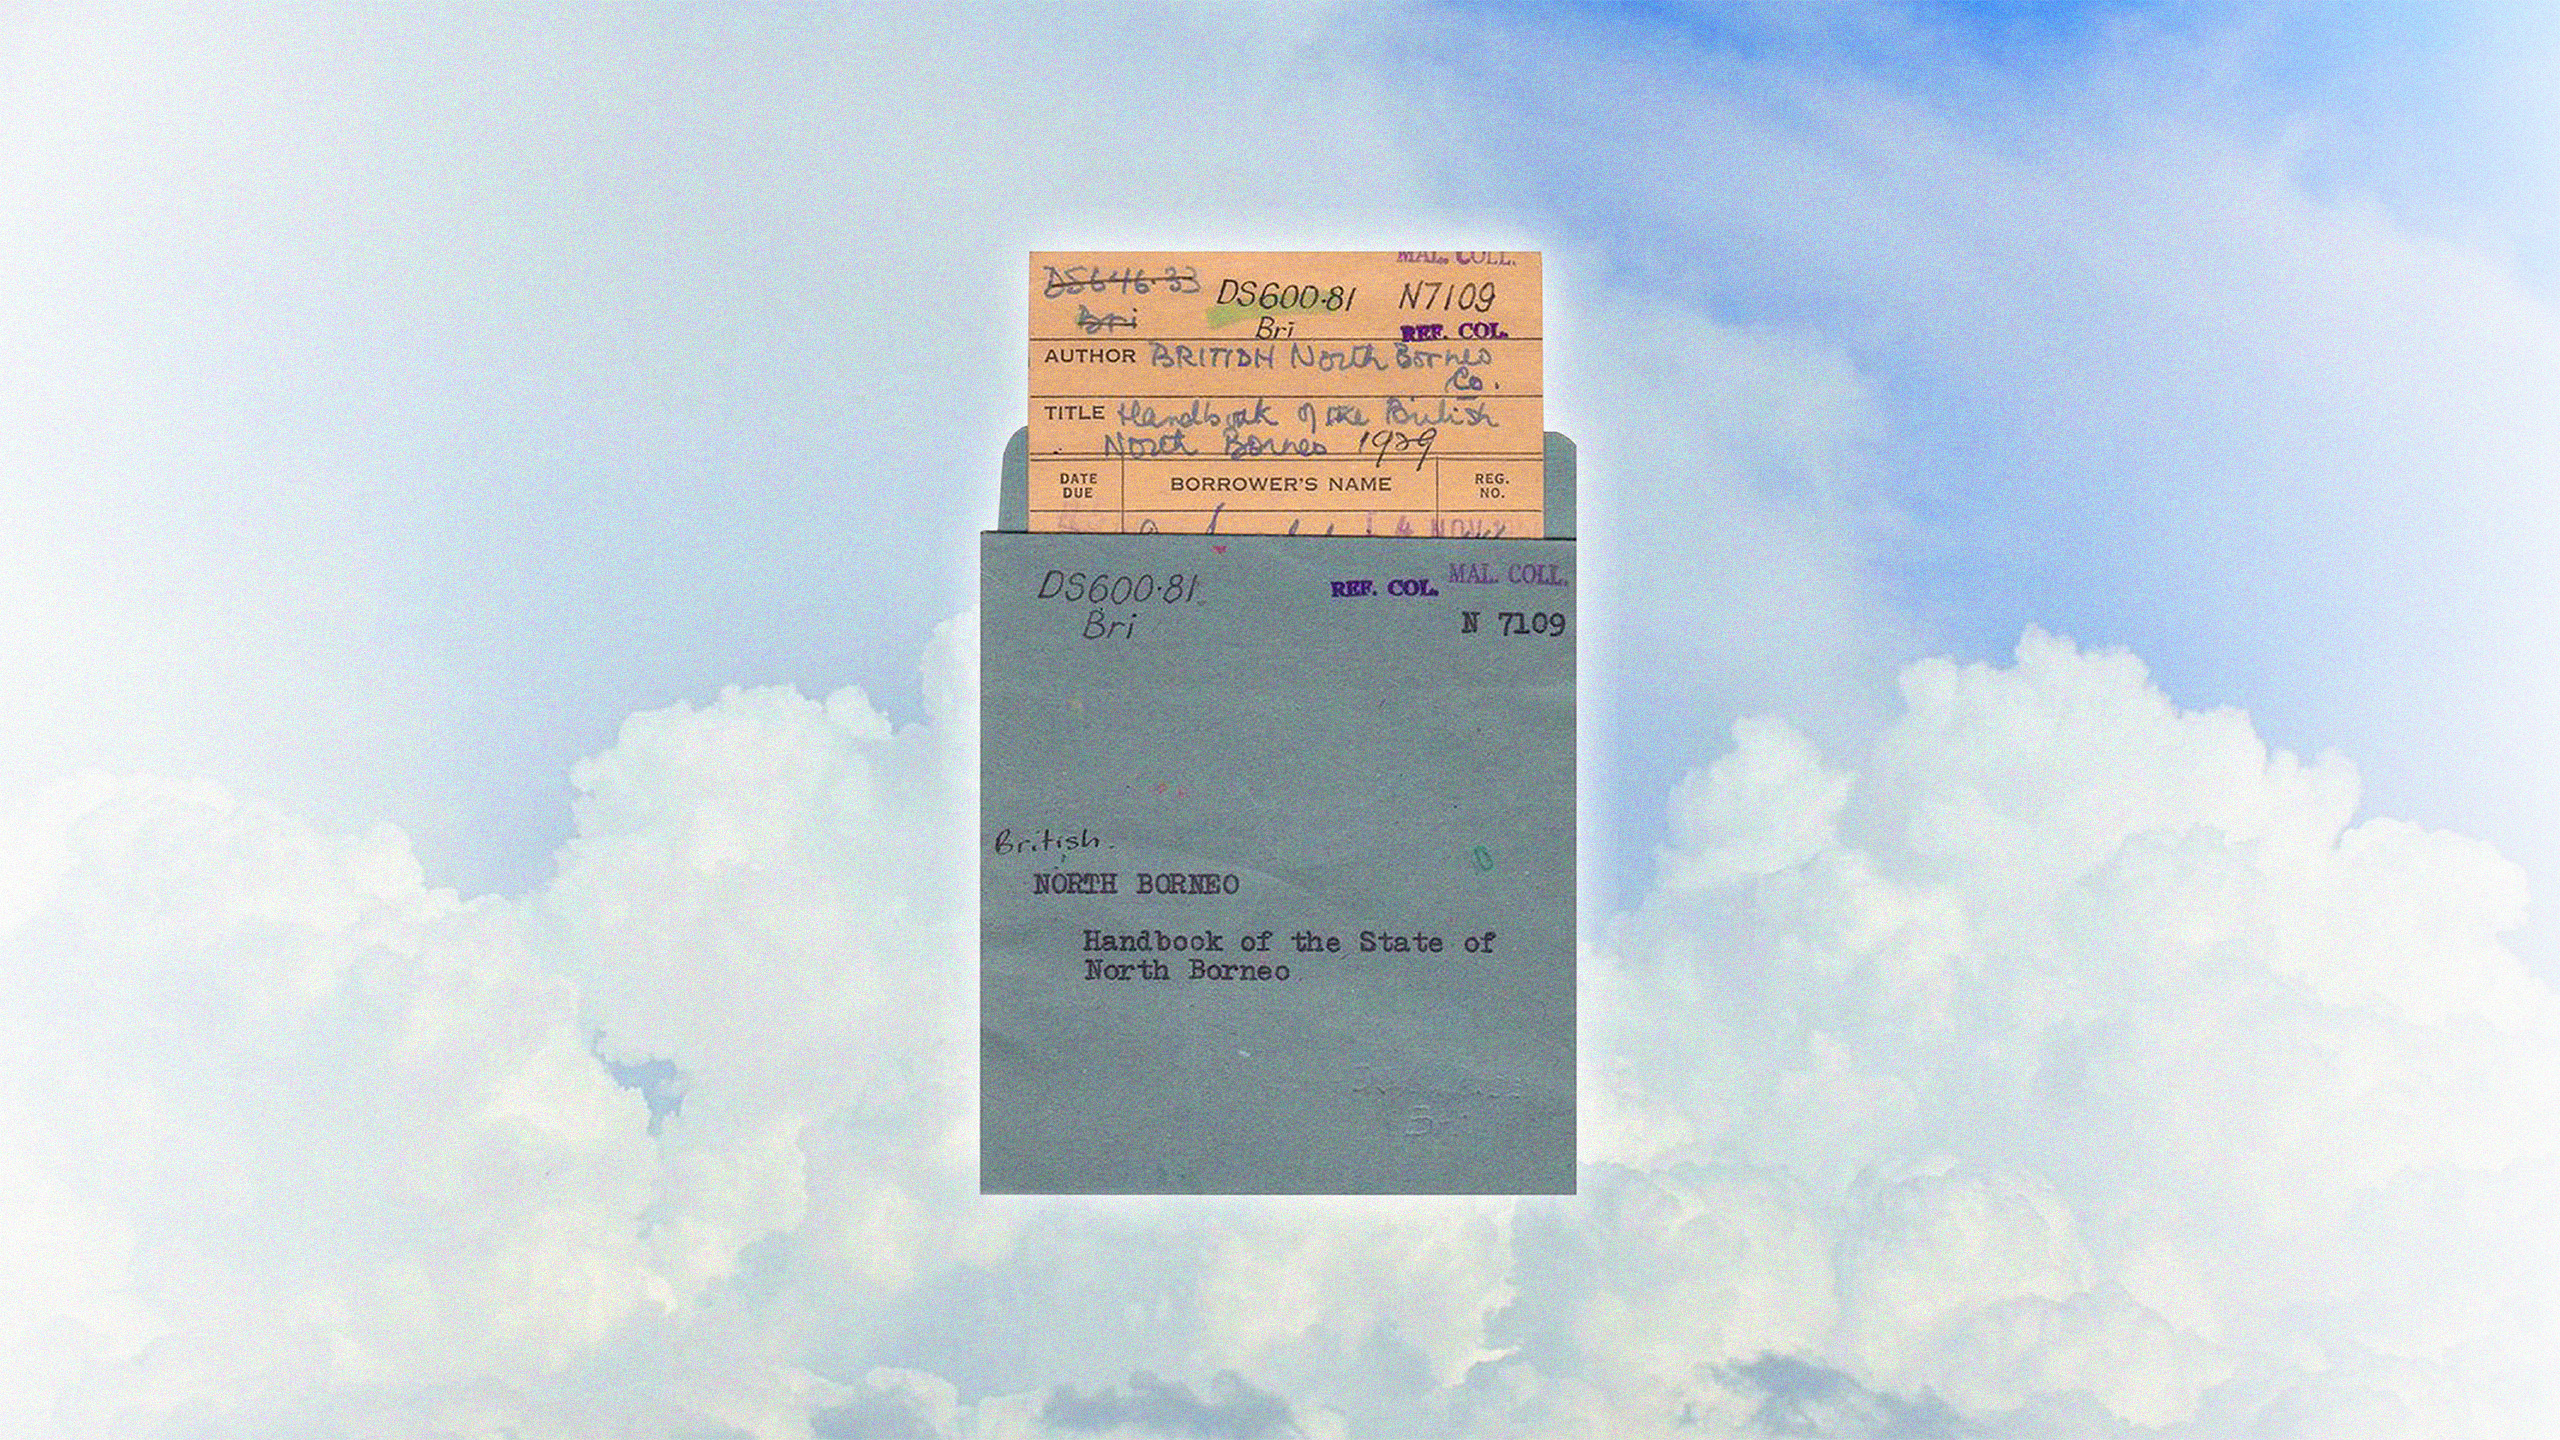 MAL. COLL.
DS646.33 DS600.81 N7109
Bri Bri REF. COL.
AUTHOR BRITISH North Borneo
Co.
TITLE Handbook of the British
North Borneo 1929
DATE DUE BORROWER'S NAME REG. NO.
DS600.81 REF. COL. MAL. COLL.
Bri N 7109
British.
NORTH BORNEO
Handbook of the State of
North Borneo